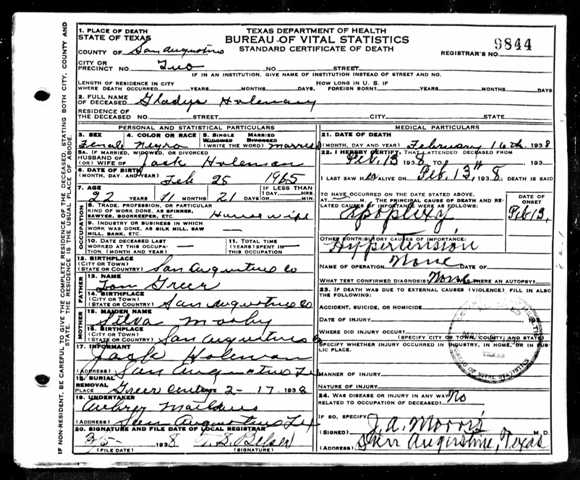 1. PLACE OF DEATH
STATE OF TEXAS
COUNTY OF San Augustine
CITY OR PRECINCT NO. Two NO. STREET
TEXAS DEPARTMENT OF HEALTH
BUREAU OF VITAL STATISTICS
STANDARD CERTIFICATE OF DEATH
REGISTRAR'S NO. 9844
IF IN AN INSTITUTION, GIVE NAME OF INSTITUTION INSTEAD OF STREET AND NO.
LENGTH OF RESIDENCE IN CITY
WHERE DEATH OCCURRED YEARS MONTHS DAYS
HOW LONG IN U. S. IF
FOREIGN BORN? YEARS MONTHS DAYS
2. FULL NAME
OF DECEASED Gladys Holeman
RESIDENCE OF
THE DECEASED STREET AND NO. CITY COUNTY STATE
PERSONAL AND STATISTICAL PARTICULARS
3. SEX 4. COLOR OR RACE 5. SINGLE MARRIED WIDOWED DIVORCED
Female Negro (WRITE THE WORD) married
5A. IF MARRIED, WIDOWED, OR DIVORCED
HUSBAND OF
(OR) WIFE OF Jack Holeman
6. DATE OF BIRTH
(MONTH, DAY AND YEAR) Feb 25
7. AGE IF LESS THAN 1 DAY
YEARS MONTHS DAYS HOURS MIN
11 21
8. TRADE, PROFESSION, OR PARTICULAR
KIND OF WORK DONE, AS SPINNER,
SAWYER, BOOKKEEPER, ETC. House wife
9. INDUSTRY OR BUSINESS IN WHICH
WORK WAS DONE, AS SILK MILL, SAW
MILL, BANK, ETC.
10. DATE DECEASED LAST
WORKED AT THIS OCCUPATION
(MONTH AND YEAR)
11. TOTAL TIME
(YEARS) SPENT IN
THIS OCCUPATION
12. BIRTHPLACE
(CITY OR TOWN)
(STATE OR COUNTRY) San Augustine Co
FATHER
13. NAME
Tom Greer
14. BIRTHPLACE
(CITY OR TOWN)
(STATE OR COUNTRY) San Augustine Co
MOTHER
15. MAIDEN NAME
Silva Mosby
16. BIRTHPLACE
(CITY OR TOWN)
(STATE OR COUNTRY) San Augustine Co
17. INFORMANT
Jack Holeman
(ADDRESS) San Augustine Tex
18. BURIAL
REMOVAL
PLACE Greer DATE 2-17 1938
19. UNDERTAKER
(ADDRESS) San Augustine Tex
20. SIGNATURE AND FILE DATE OF LOCAL REGISTRAR
(FILE DATE) (SIGNATURE)
MEDICAL PARTICULARS
21. DATE OF DEATH
(MONTH, DAY AND YEAR) February 16th, 1938
22. I HEREBY CERTIFY THAT I ATTENDED DECEASED FROM
Feb. 13 1938 TO 193
I LAST SAW ALIVE ON Feb. 13th 1938 DEATH IS SAID
TO HAVE OCCURRED ON THE DATE STATED ABOVE
AT M. THE PRINCIPAL CAUSE OF DEATH AND RELATED CAUSES OF IMPORTANCE WERE AS FOLLOWS:
DATE OF ONSET
Apoplexy Feb 13,
OTHER CONTRIBUTORY CAUSES OF IMPORTANCE:
Hypertension
NAME OF OPERATION None
WHAT TEST CONFIRMED DIAGNOSIS? WAS THERE AN AUTOPSY
23. IF DEATH WAS DUE TO EXTERNAL CAUSES (VIOLENCE) FILL IN ALSO
THE FOLLOWING:
ACCIDENT, SUICIDE, OR HOMICIDE
DATE OF INJURY
WHERE DID INJURY OCCUR?
(SPECIFY CITY OR TOWN, COUNTY, AND STATE)
SPECIFY WHETHER INJURY OCCURRED IN INDUSTRY, IN HOME, OR IN PUBLIC PLACE.
MANNER OF INJURY
NATURE OF INJURY
24. WAS DISEASE OR INJURY IN ANY WAY
RELATED TO OCCUPATION OF DECEASED? No
IF SO, SPECIFY
(SIGNED) J. A. Morris M.D.
(ADDRESS) San Augustine, Texas